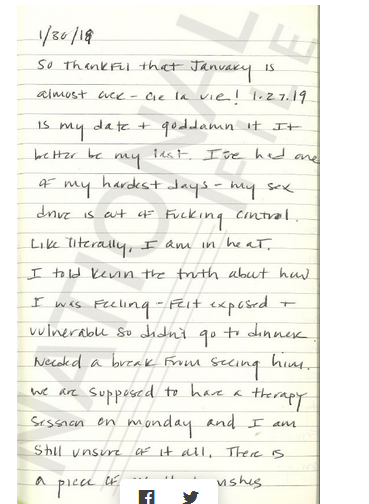 1/30/19
So thankful that January is
almost over - cie la vie! 1.27.19
is my date + goddamn it It
better be my last. I've had one
of my hardest days - my sex
drive is out of fucking control.
Like literally, I am in heat.
I told Kevin the truth about how
I was feeling - felt exposed +
vulnerable so didn't go to dinner.
Needed a break from seeing him.
We are supposed to have a therapy
session on monday and I am
still unsure of it all. There is
a piece of wishes
NATIONAL
FILE